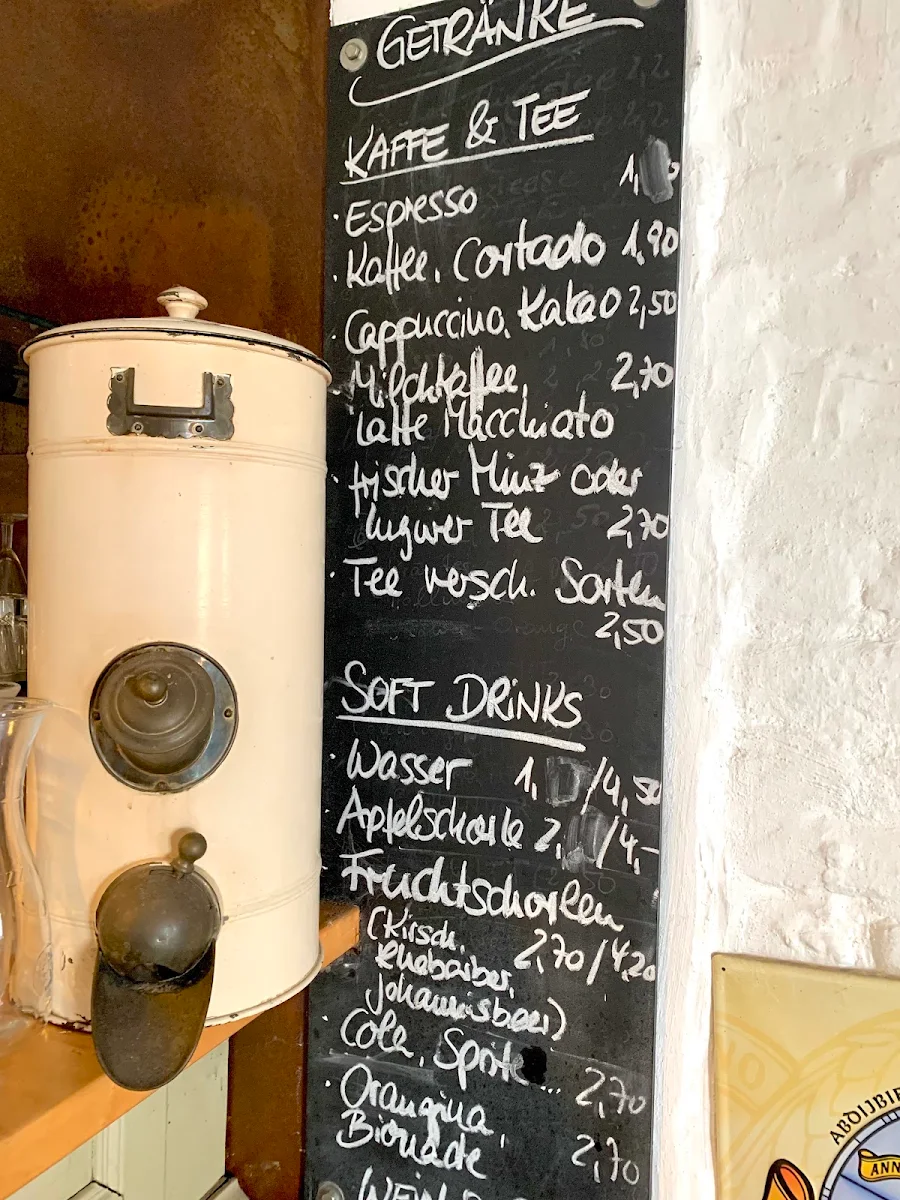 GETRÄNKE
KAFFE & TEE
· Espresso 1,
· Kaffee, Cortado 1,90
· Cappuccino, Kakao 2,50
· Milchkaffee, 2,70
Latte Macchiato
· frischer Minz oder
Ingwer Tee 2,70
· Tee versch. Sorten
2,50
SOFT DRINKS
· Wasser 1, /4,50
· Apfelschorle 2, /4,-
· Fruchtschorlen
(Kirsch, 2,70/4,20
Rhabarber,
Johannisbeer)
· Cola, Sprite... 2,70
· Orangina,
Bionade 2,70
WEIN
ABDIJBIE
ANN